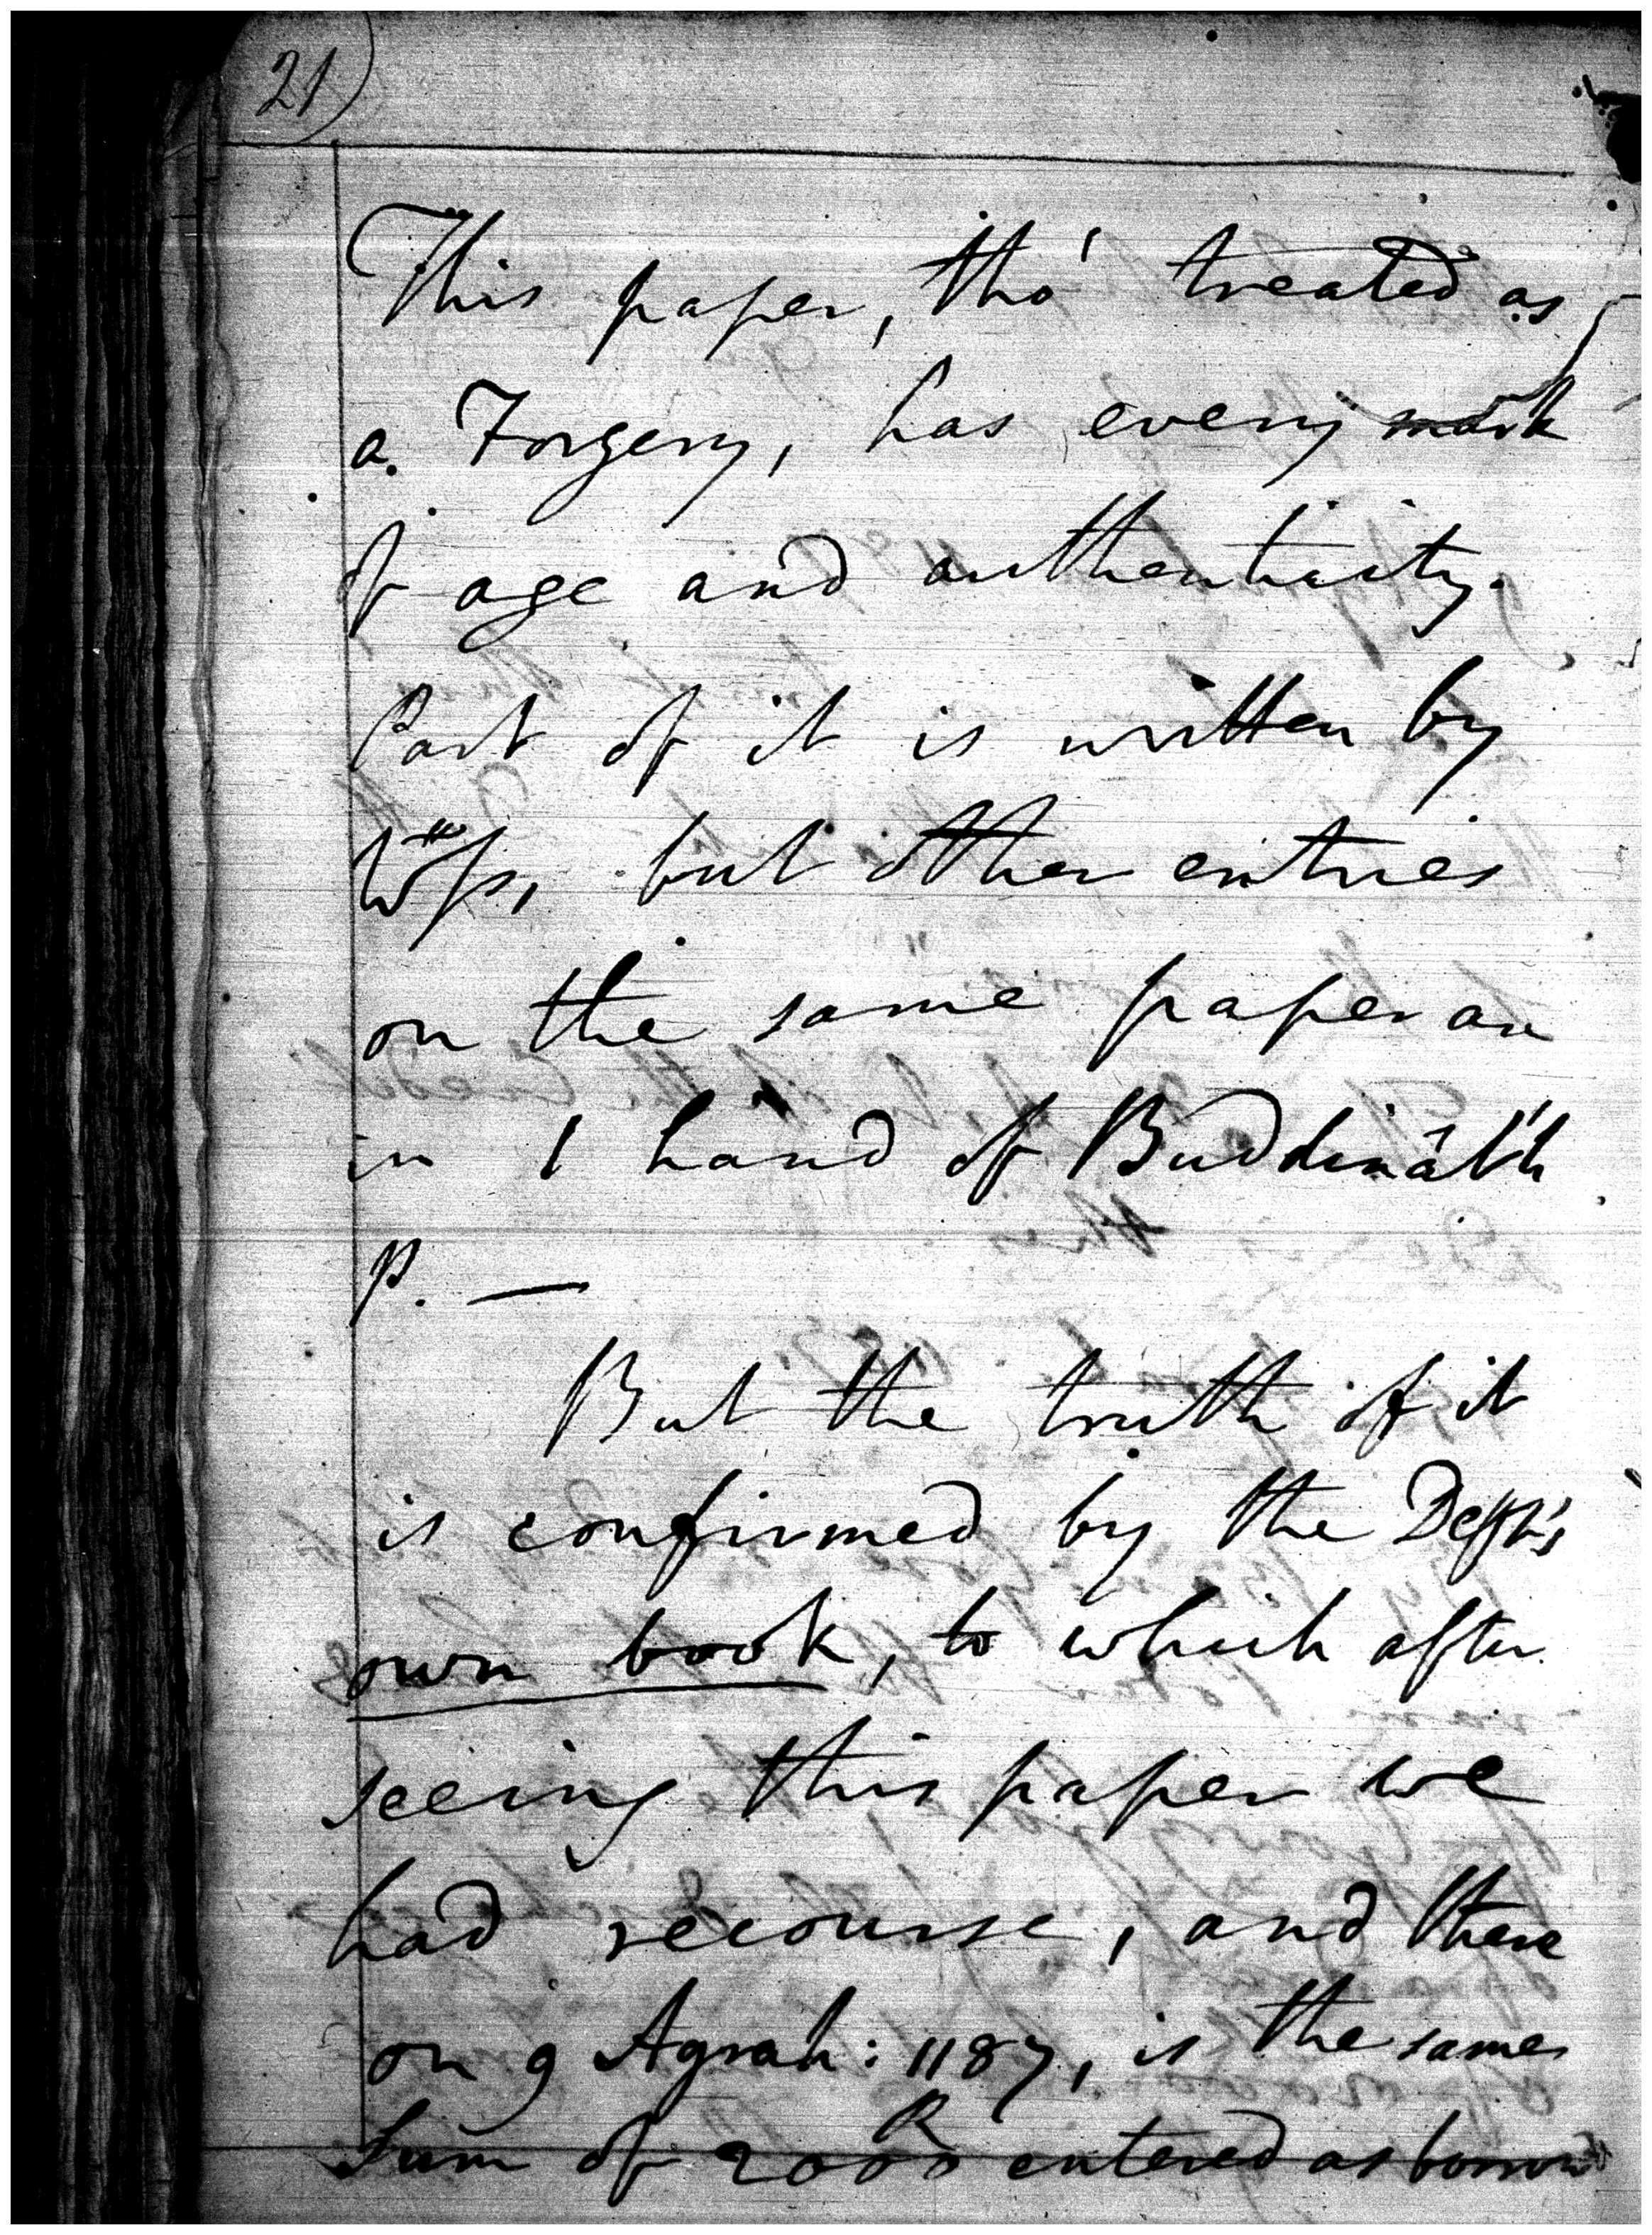 21)
This paper, tho' treated as
a Forgery, has every mark
of age and authenticity.
Part of it is written by
but other entries
on the same paper are
in / hand of Buddinât'h
P. —
But the truth of it
is confirmed by the Deft's
own book, to which after
seeing this paper we
had recourse, and there
on 9 Agrah: 1187, is the same
Sum of 2000 R entered as borrow'd